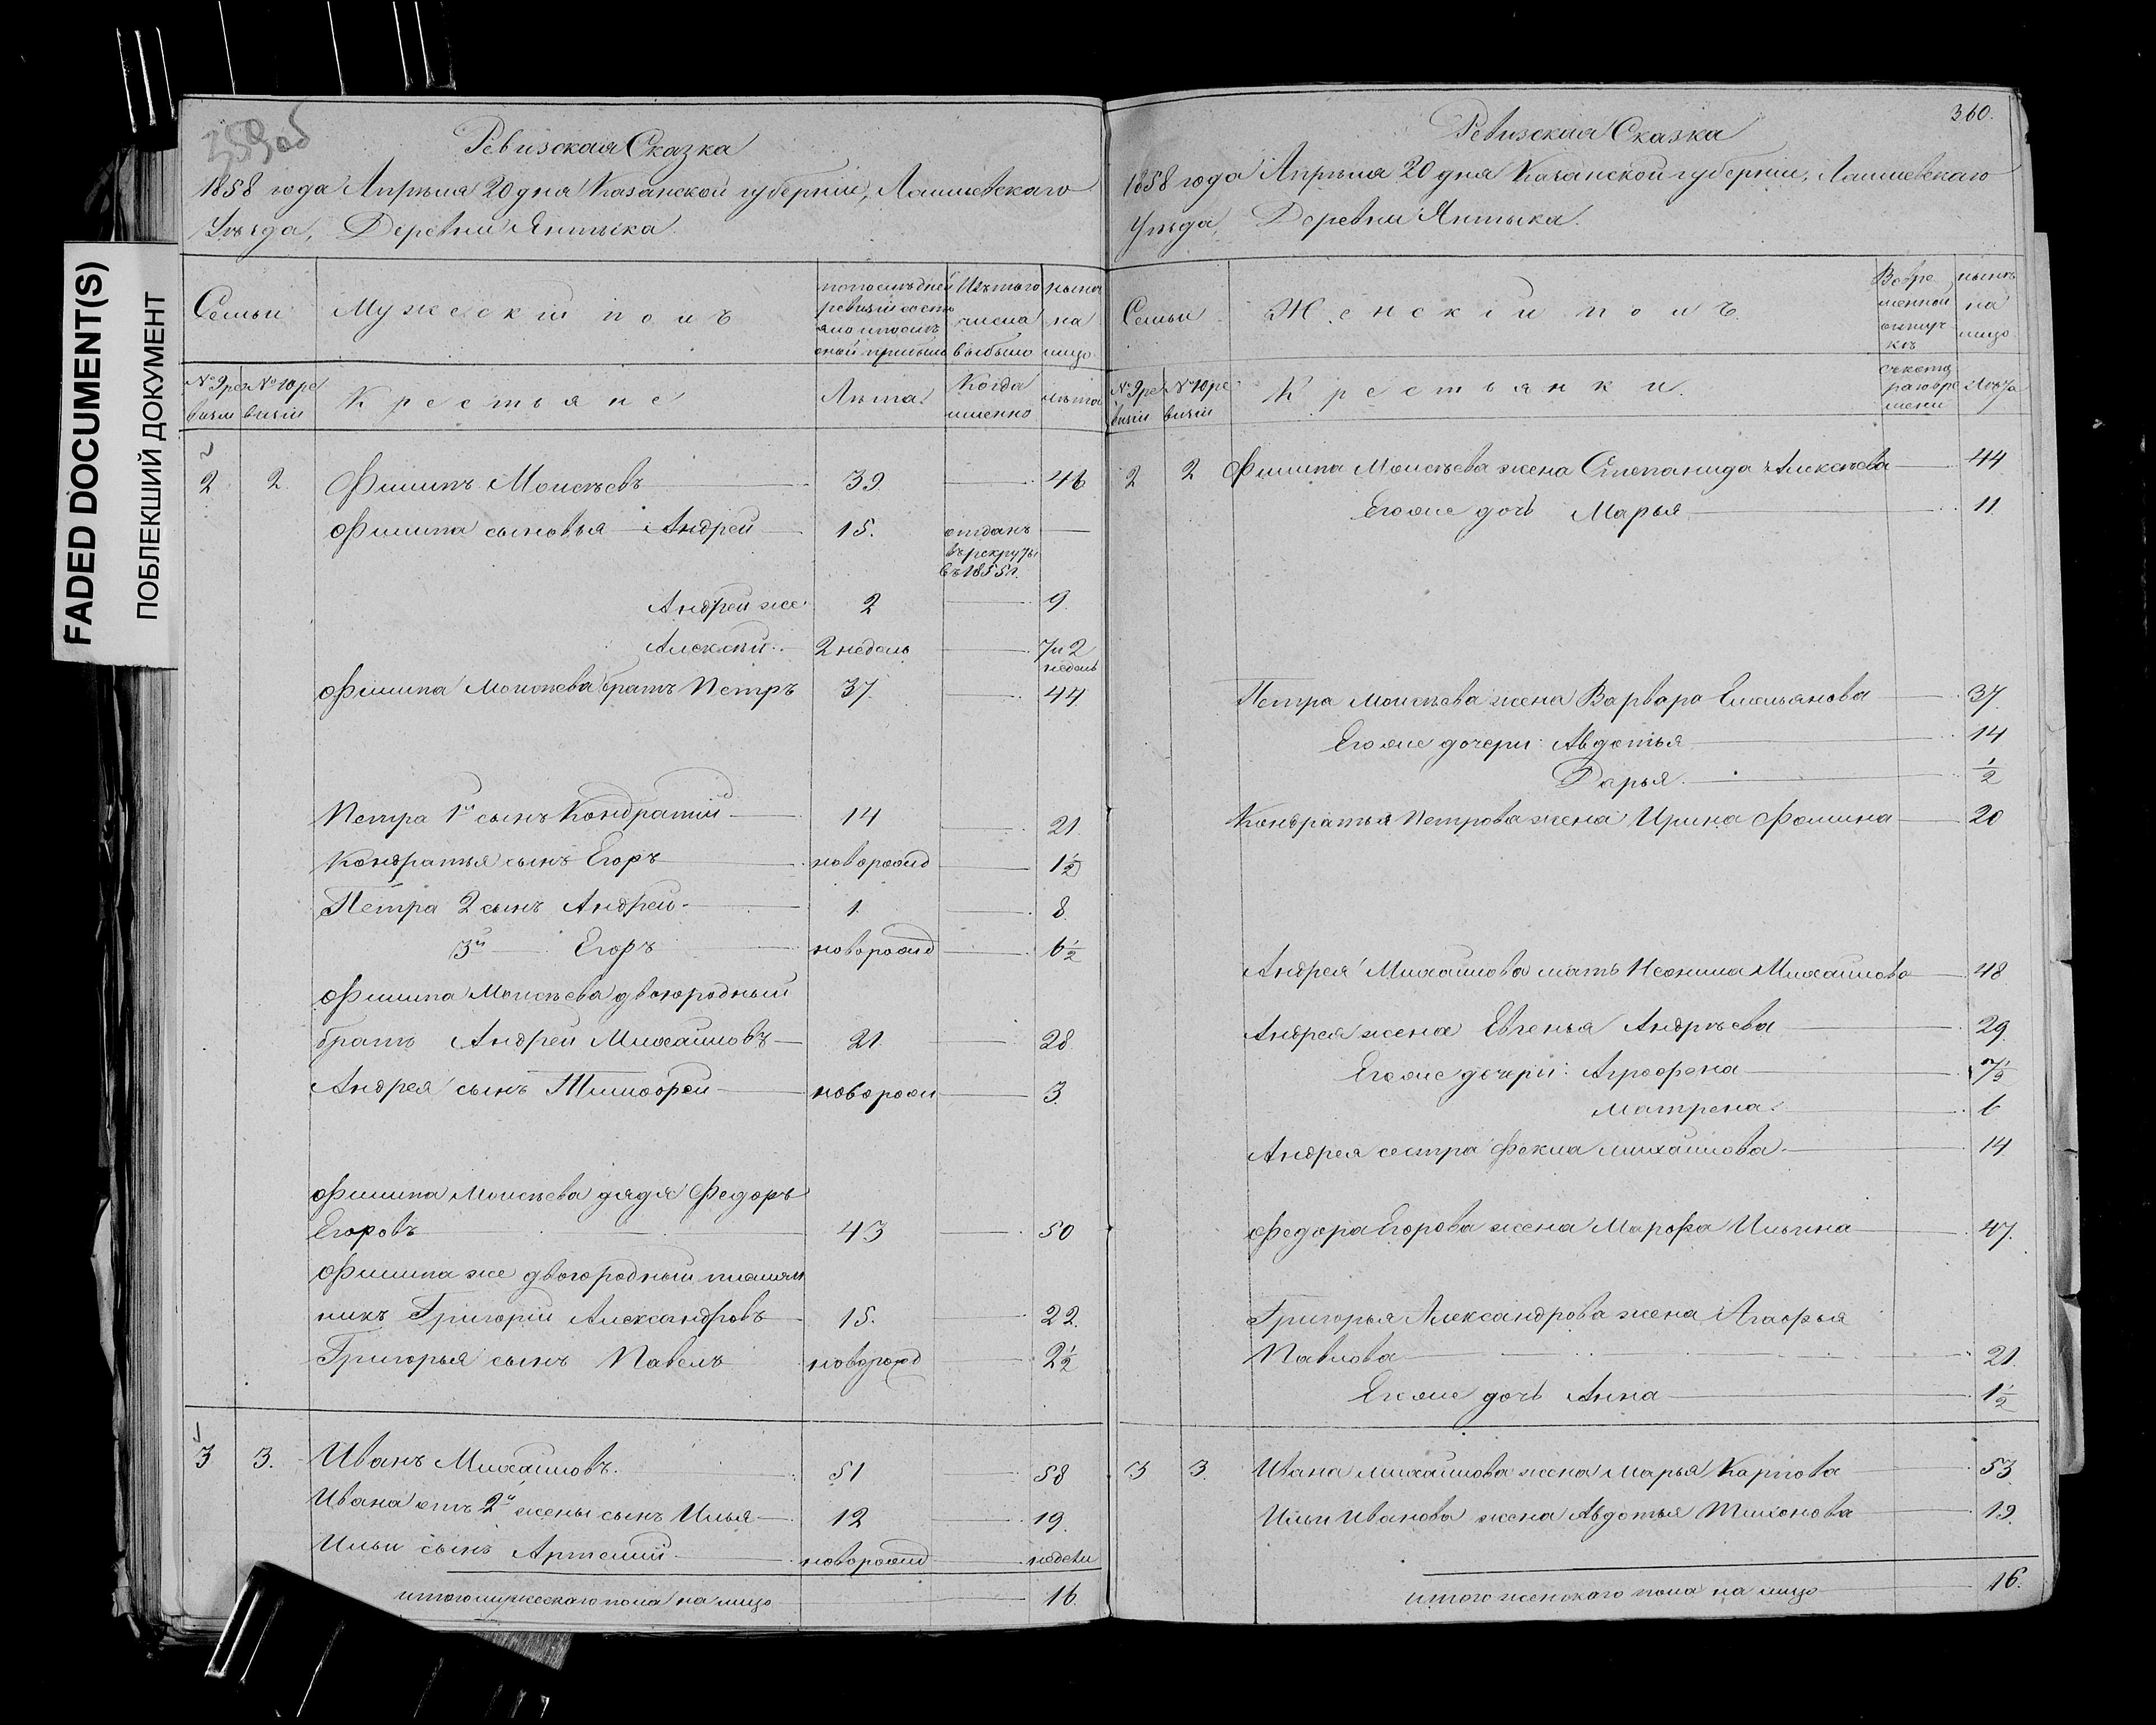 FADED DOCUMENT(S)
ПОБЛЕКШИЙ ДОКУМЕНТ
359 об
Ревизская Сказка
1858 года Апрѣля 20 дня Казанской губерніи, Лаишевскаго
Уѣзда, Деревни Янтыка.
Семьи
Мужескій полъ
по послѣдней ревизіи состояло и послѣ оной прибыло
Изъ того числа выбыло
нынѣ на лицо
№ 9 ревизіи
№ 10 ревизіи
Крестьяне
Лѣта
Когда именно
лѣта
2 2. Филипъ Моисѣевъ 39. 46
Филипа сыновья Андрей 15. отданъ въ рекруты въ 1855 г.
Андрей же 2 9.
Алексѣй 2 недель 7 и 2 недель
Филипа Моисѣева братъ Петръ 37. 44
Петра 1й сынъ Кондратій 14 21.
Кондратья сынъ Егоръ новорожд 1½
Петра 2 сынъ Андрей 1. 8.
3й Егоръ новорожд 6½
Филипа Моисѣева двоюродный
братъ Андрей Михайловъ 21 28.
Андрея сынъ Тимофей новорож 3.
Филипа Моисѣева дядя Федоръ
Егоровъ 43 50
Филипа же двоюродный племян
никъ Григорій Александровъ 15. 22.
Григорья сынъ Павелъ новорожд 2½
3 3. Иванъ Михайловъ. 51 58
Ивана отъ 2й жены сынъ Илья 12 19.
Ильи сынъ Артемій новорожд недели
итого мужескаго пола на лицо 16.
360.
Ревизская Сказка
1858 года Апрѣля 20 дня Казанской губерніи, Лаишевскаго
Уѣзда, Деревни Янтыка.
Семьи
Женскій полъ.
Во временной отлучкѣ
нынѣ на лицо
№ 9 ревизіи
№ 10 ревизіи
Крестьянки.
съ котораго времени
Лѣта
2 2 Филипа Моисѣева жена Степанида Алексѣева 44
Его же дочь Марья 11
Петра Моисѣева жена Варвара Емельянова 37.
Его же дочери: Авдотья 14
Дарья. ½
Кондратья Петрова жена Ирина Фомина 20
Андрея Михайлова мать Неонила Михайлова 48.
Андрея жена Евгенья Андрѣева 29.
Его же дочери: Аграфена
Матрена. 6
Андрея сестра Фекла Михайлова 14
Федора Егорова жена Марфа Ильина 47.
Григорья Александрова жена Агафья
Павлова 21.
Его же дочь Анна 1½
3 3. Ивана Михайлова жена Марья Карпова 53
Ильи Иванова жена Авдотья Тихонова 19.
итого женскаго пола на лицо 16.